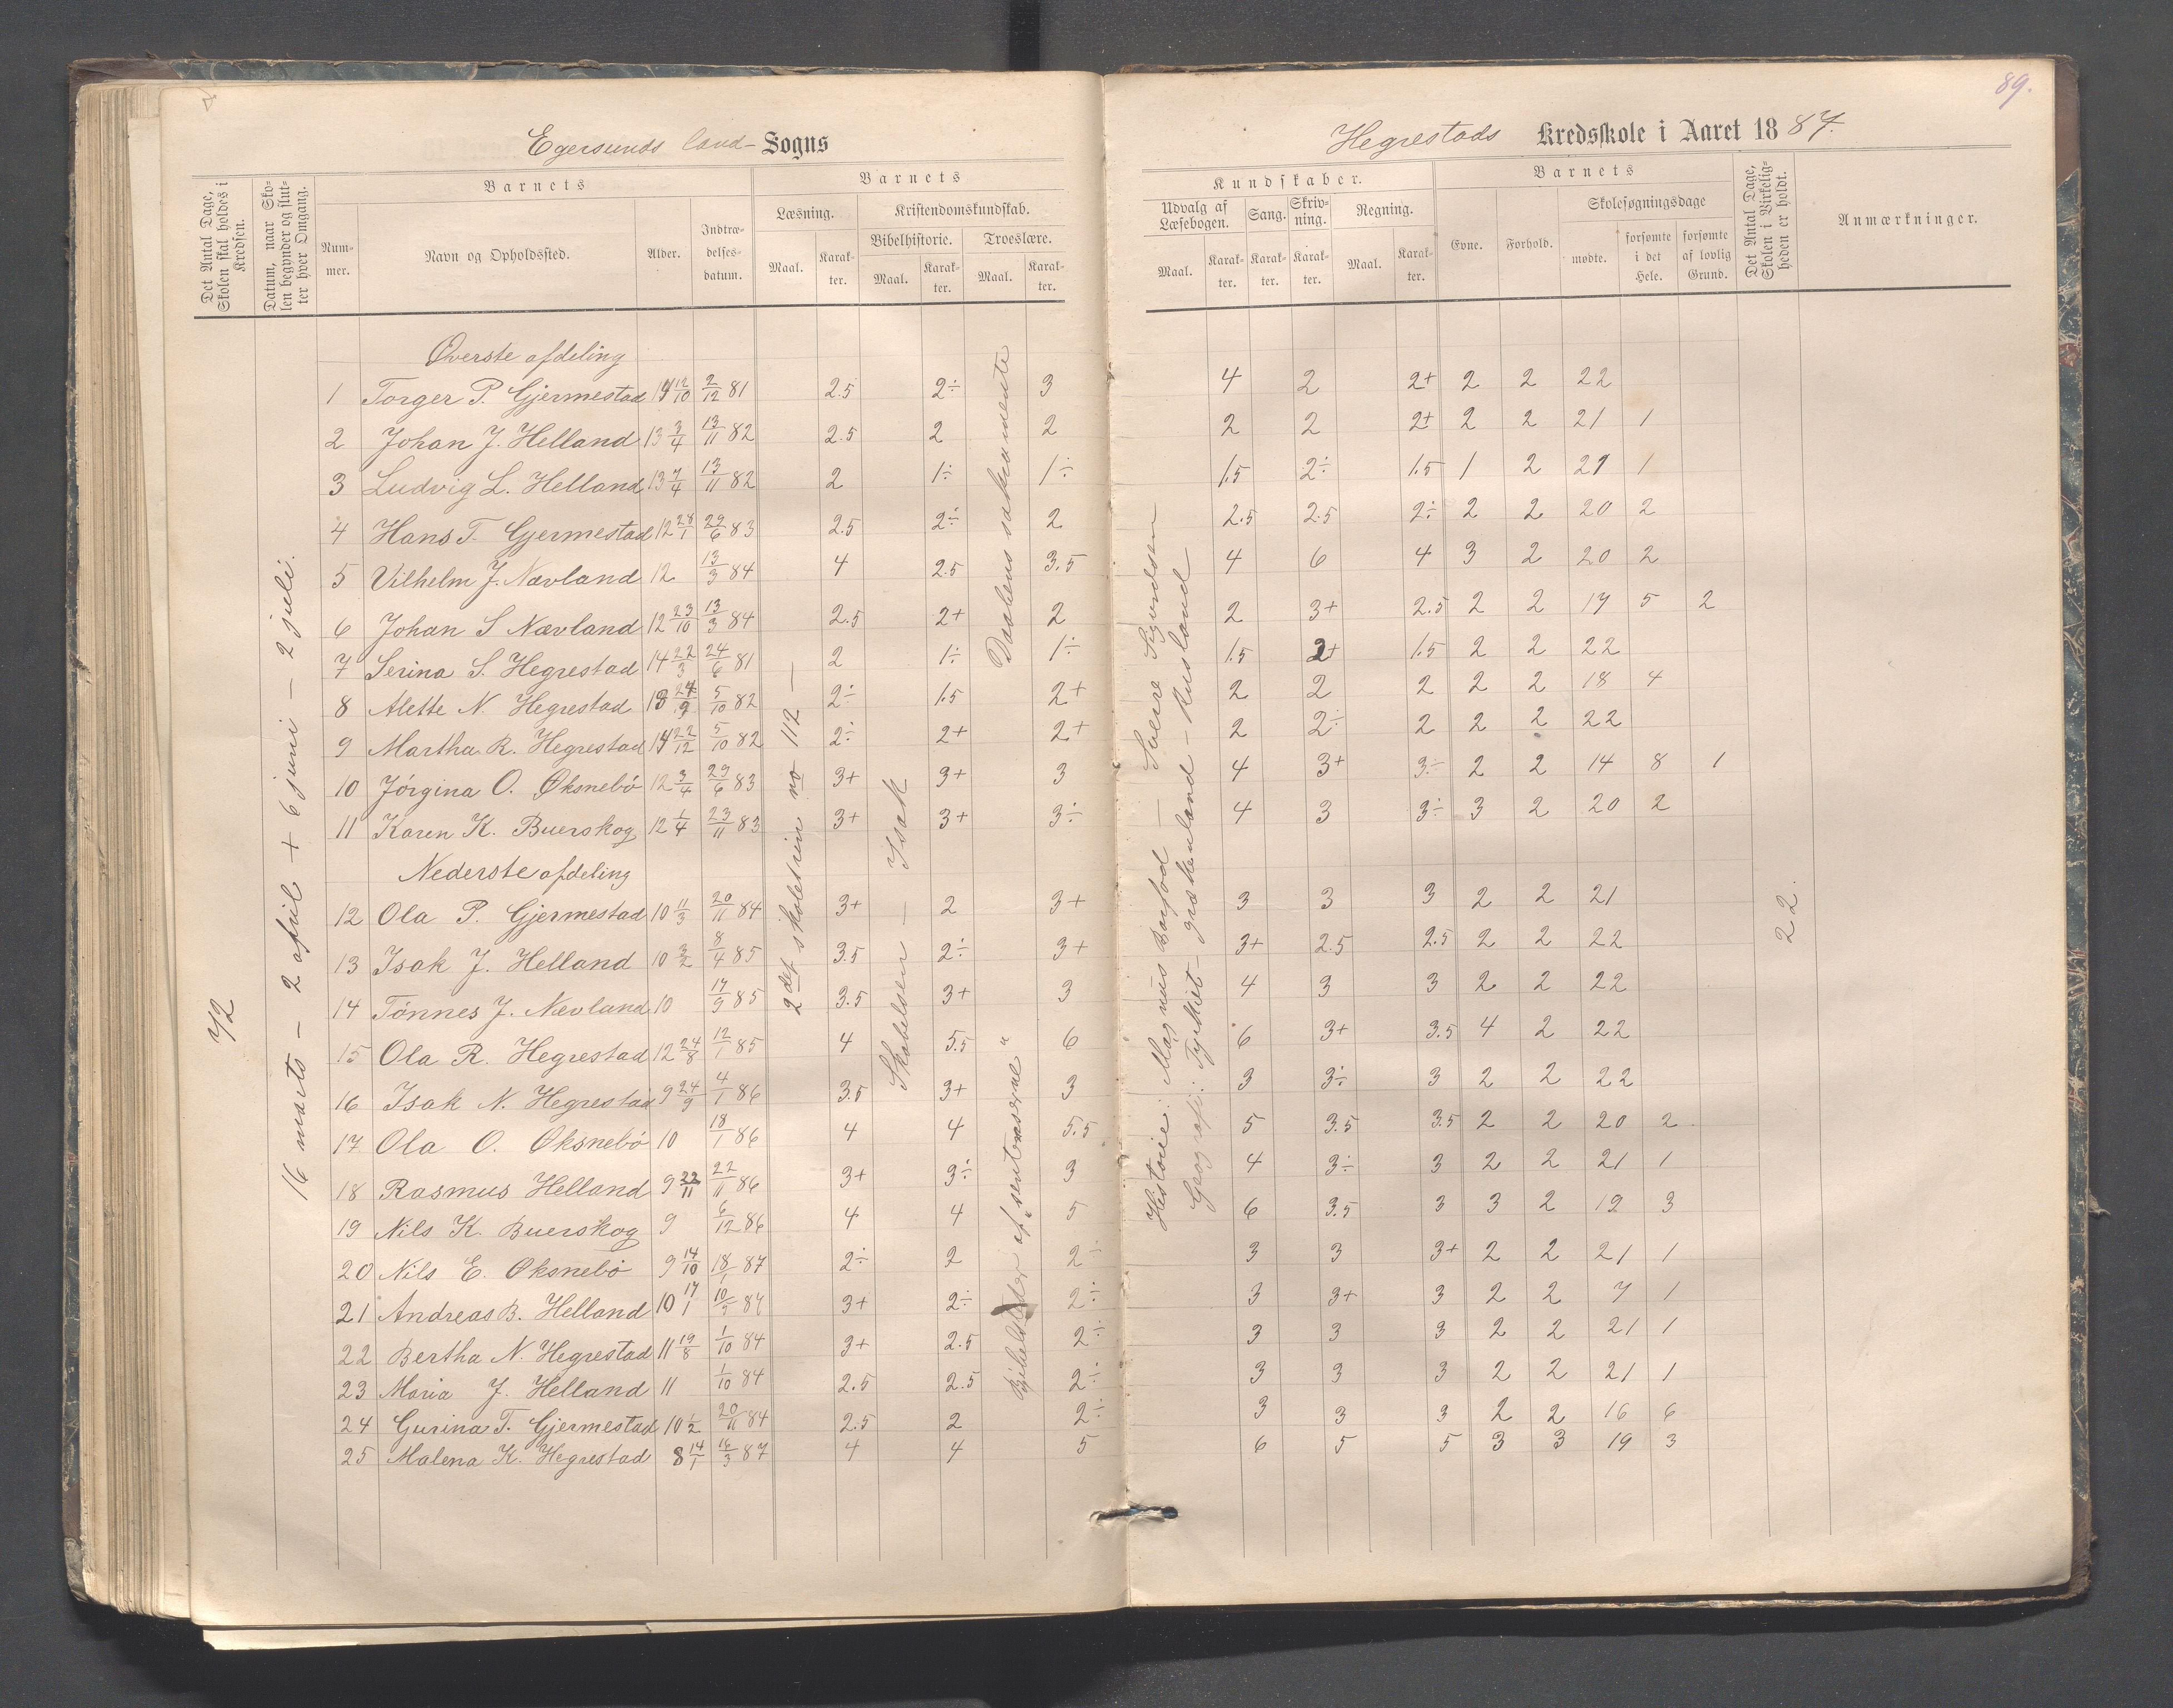 89.
Egersunds land- Sogns
Hegrestads Kredsskole i Aaret 1887.
Det Antal Dage, Skolen skal holdes i Kredsen.
Datum, naar Skolen begynder og slutter hver Omgang.
Barnets
Nummer.
Navn og Opholdssted.
Alder.
Indtrædelsesdatum.
Barnets
Læsning.
Maal.
Karakter.
Kristendomskundskab.
Bibelhistorie.
Maal.
Karakter.
Troeslære.
Maal.
Karakter.
Kundskaber.
Udvalg af Læsebogen.
Maal.
Karakter.
Sang.
Karakter.
Skrivning.
Karakter.
Regning.
Maal.
Karakter.
Barnets
Evne.
Forhold.
Skolesøgningsdage
mødte.
forsømte i det Hele.
forsømte af lovlig Grund.
Det Antal Dage, Skolen i Virkeligheden er holdt.
Anmærkninger.
72
16 marts - 2 april + 6 juni - 2 juli.
2det skoletrin no 112 —
Skabelsen — Isak
Daabens sakramente
Historie: Magnus Barfod — Sverre Sigurdsen
Geografi: Tyrkiet - grækenland - Rusland
22.
Øverste afdeling
1 Torger P. Gjermestad 14 12/10 2/12 81 2.5 2÷ 3 4 2 2+ 2 2 22
2 Johan J. Helland 13 3/4 13/11 82 2.5 2 2 2 2 2+ 2 2 21 1
3 Ludvig L. Helland 13 7/4 13/11 82 2 1÷ 1÷ 1.5 2÷ 1.5 1 2 21 1
4 Hans T. Gjermestad 12 28/1 29/6 83 2.5 2÷ 2 2.5 2.5 2÷ 2 2 20 2
5 Vilhelm J. Nævland 12 13/3 84 4 2.5 3.5 4 6 4 3 2 20 2
6 Johan S Nævland 12 23/10 13/3 84 2.5 2+ 2 2 3+ 2.5 2 2 17 5 2
7 Serina S. Hegrestad 14 22/3 24/6 81 2 1÷ 1÷ 1.5 2+ 1.5 2 2 22
8 Alette N. Hegrestad 13 24/9 5/10 82 2÷ 1.5 2+ 2 2 2 2 2 18 4
9 Martha R. Hegrestad 14 22/12 5/10 82 2÷ 2+ 2+ 2 2÷ 2 2 2 22
10 Jörgina O. Øksnebö 12 3/4 29/6 83 3+ 3+ 3 4 3+ 3÷ 2 2 14 8 1
11 Karen K. Buerskog 12 1/4 23/11 83 3+ 3+ 3÷ 4 3 3÷ 3 2 20 2
Nederste afdeling
12 Ola P. Gjermestad 10 11/3 20/11 84 3+ 2 3+ 3 3 3 2 2 21
13 Isak J. Helland 10 3/2 8/4 85 3.5 2÷ 3+ 3+ 2.5 2.5 2 2 22
14 Tönnes J. Nævland 10 17/9 85 3.5 3+ 3 4 3 3 2 2 22
15 Ola R. Hegrestad 12 24/8 12/1 85 4 5.5 6 6 3+ 3.5 4 2 22
16 Isak N. Hegrestad 9 24/9 4/1 86 3.5 3+ 3 3 3÷ 3 2 2 22
17 Ola O. Øksnebö 10 18/1 86 4 4 5.5 5 3.5 3.5 2 2 20 2
18 Rasmus Helland 9 22/11 22/11 86 3+ 3÷ 3 4 3÷ 3 2 2 21 1
19 Nils K. Buerskog 9 6/12 86 4 4 5 6 3.5 3 3 2 19 3
20 Nils E. Øksnebö 9 14/10 18/1 87 2÷ 2 2÷ 3 3 3+ 2 2 21 1
21 Andreas B. Helland 10 17/1 10/9 84 3+ 2÷ 2÷ 3 3+ 3 2 2 7 1
22 Bertha N. Hegrestad 11 19/8 1/10 84 3+ 2.5 2÷ 3 3 3 2 2 21 1
23 Maria J. Helland 11 1/10 84 2.5 2.5 2÷ 3 3 3 2 2 21 1
24 Gurina T. Gjermestad 10 1/2 20/11 84 2.5 2 2÷ 3 3 3 2 2 16 6
25 Malena K. Hegrestad 8 14/1 16/3 87 4 4 5 6 5 5 3 3 19 3